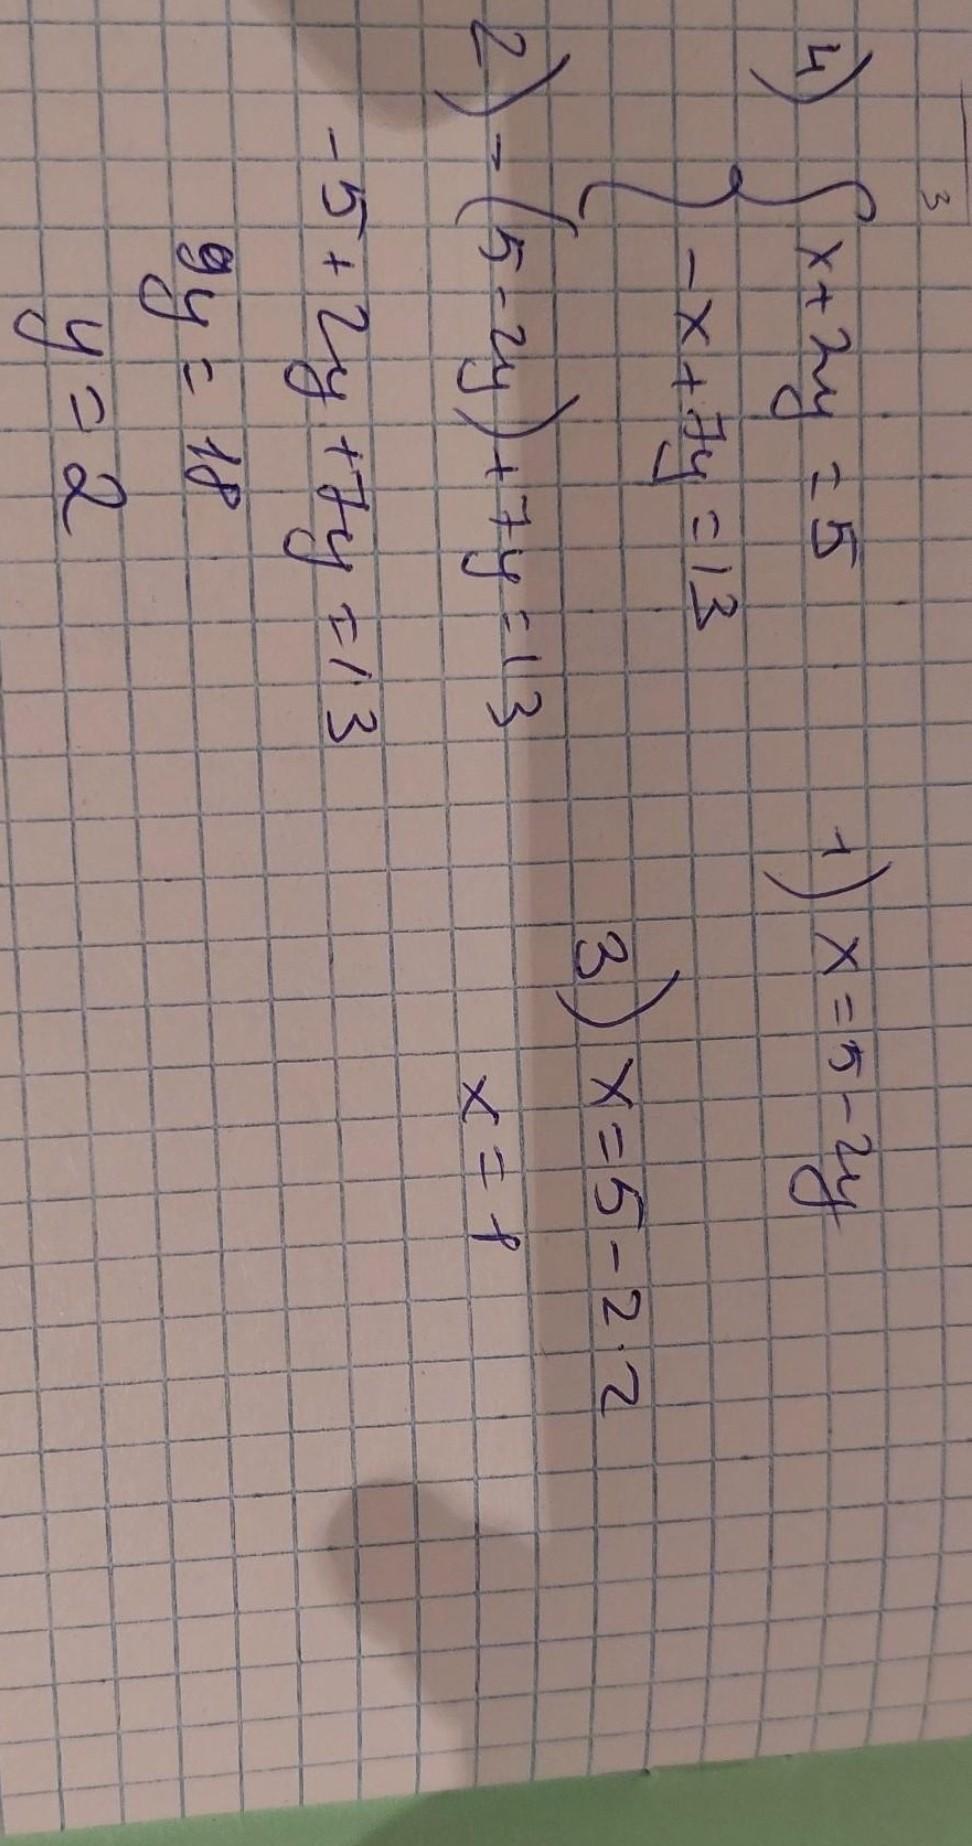 3
4) { x + 2y = 5
-x + 7y = 13
1) x = 5 - 2y
2) - (5 - 2y) + 7y = 13
-5 + 2y + 7y = 13
9y = 18
y = 2
3) x = 5 - 2 · 2
x = 1